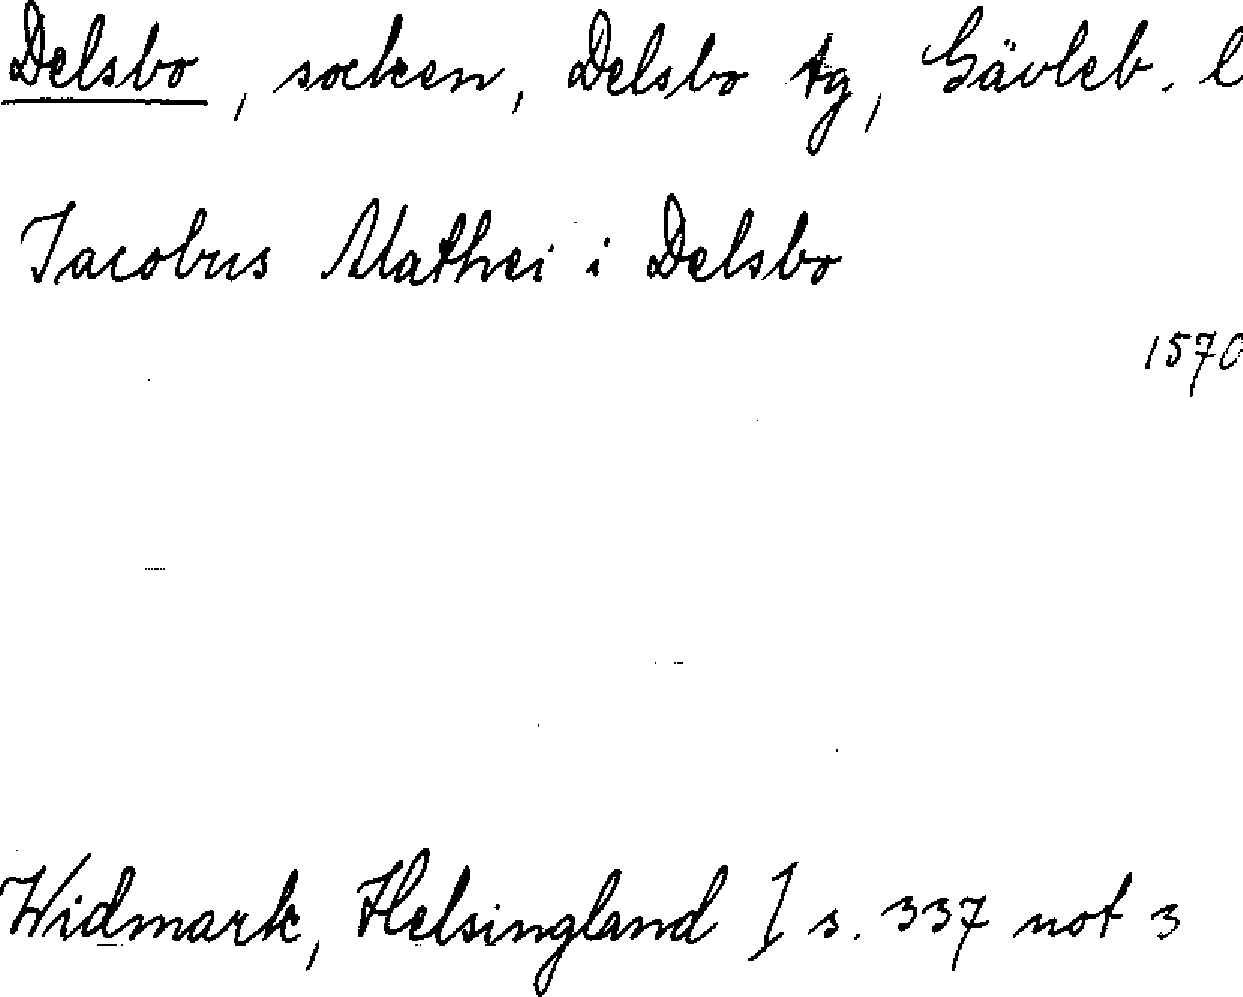 Delsbo, socken, Delsbo tg, Gävleb. l
Jacobus Mathei i Delsbo
1570
Widmark, Helsingland I s. 337 not 3